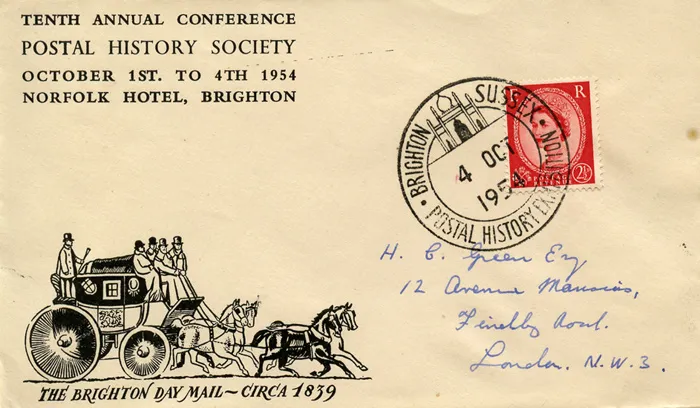 TENTH ANNUAL CONFERENCE
POSTAL HISTORY SOCIETY
OCTOBER 1ST. TO 4TH 1954
NORFOLK HOTEL, BRIGHTON
BRIGHTON · SUSSEX ·
4 OCT
1954
· POSTAL HISTORY EXHIBITION
E R
POSTAGE REVENUE
2½D
H. C. Green Esq,
12 Avenue Mansions,
Finchley Road.
London. N.W.3.
THE BRIGHTON DAY MAIL~CIRCA 1839